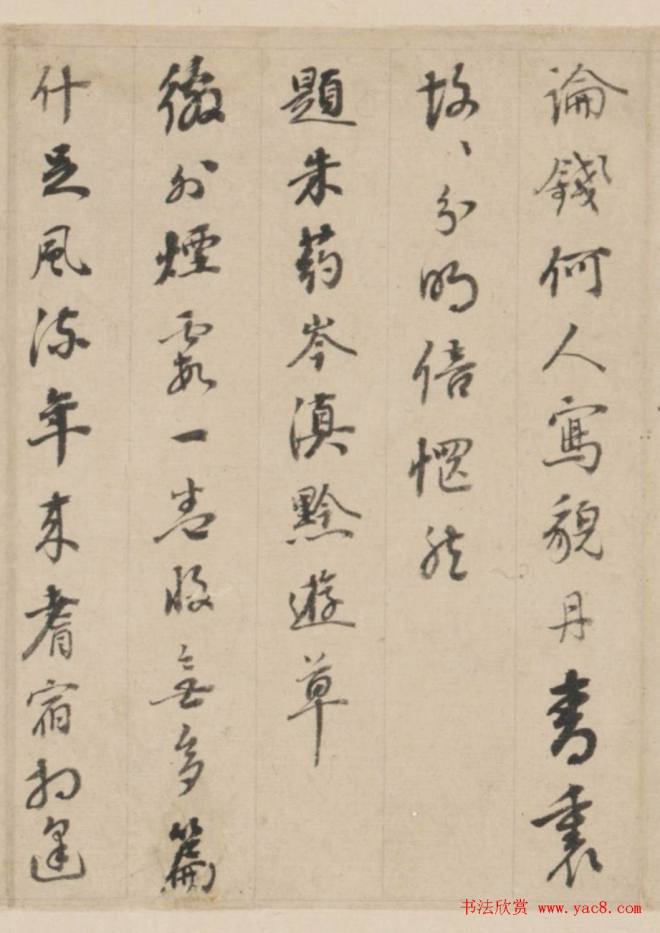 論錢何人寫貌丹青裏
故〻分明倍惘然
題朱葯岑滇黔遊草
徼外煙霞一卷收無多篇
什足風流年來耆宿相逢
书法欣赏 www.yac8.com